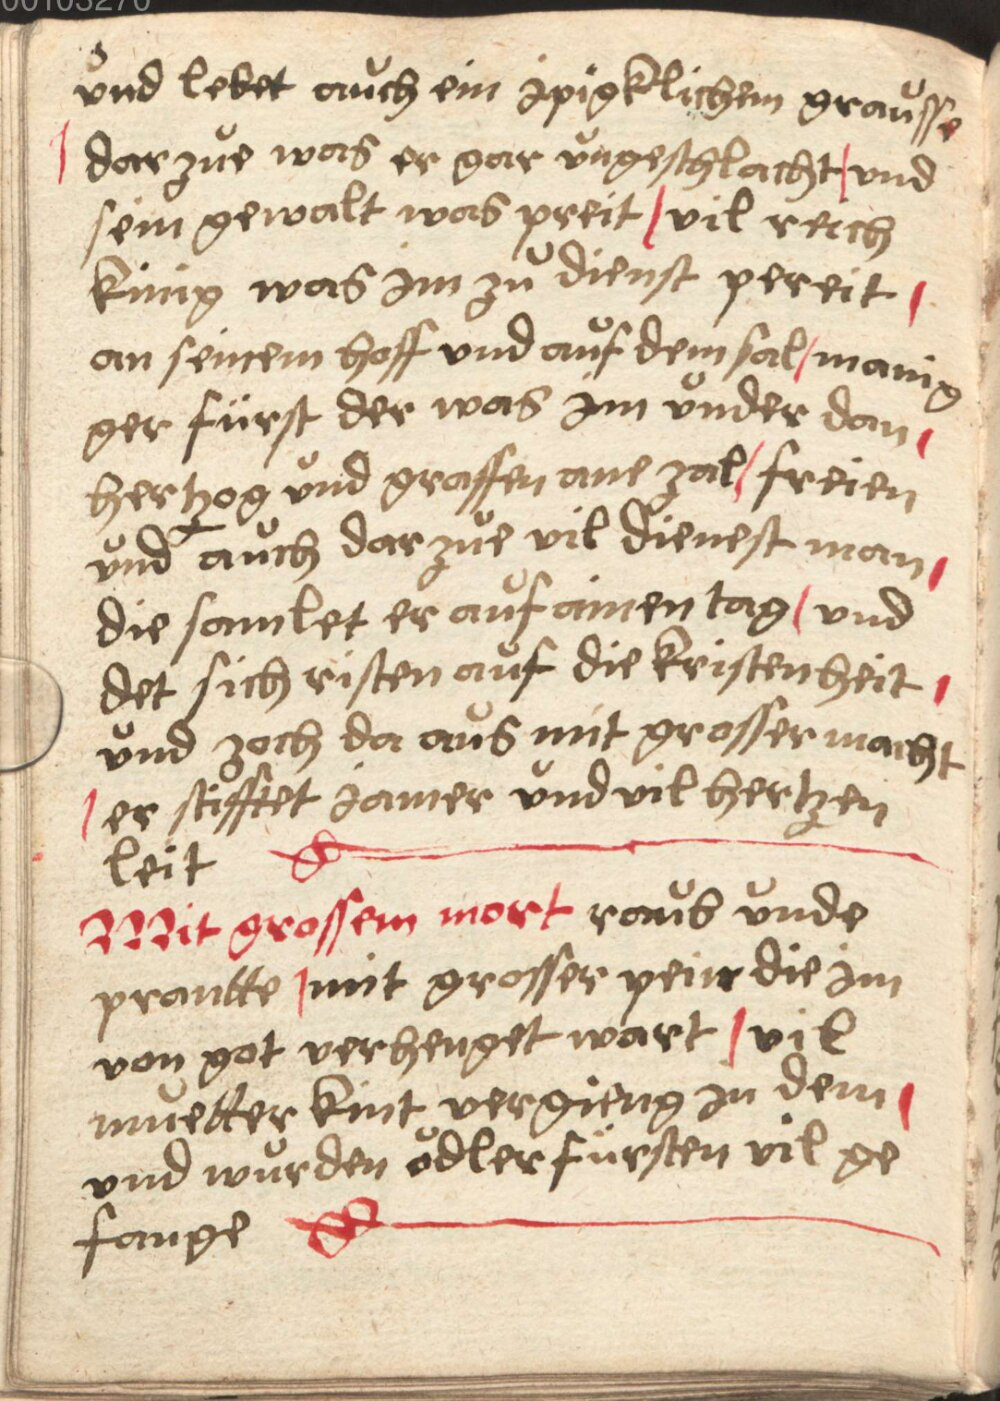 00103270
vnd lebet auch ein ipigklichem grausse
dar zue was er gar vngeschlacht / vnd
sein gewalt was preit / vil reich
kinig was im zu dienst pereit /
an seinem hoff vnd auf dem sal / manig
ger fürst der was im vnder dan /
hertzog vnd graffen ane zal / freien
vnd auch dar zue vil dienest man /
die samlet er auf ainen tag / vnd
det sich risten auf die kristenheit /
vnd zoch da aus mit grosser macht
/ er stifftet iamer vnd vil hertzen
leit
Mit grossem mort raus vnde
prantte / mit grosser pein die im
von got verhenget wart / vil
muetter kint vergieng in dem /
vnd wurden ödler fürsten vil ge
fange